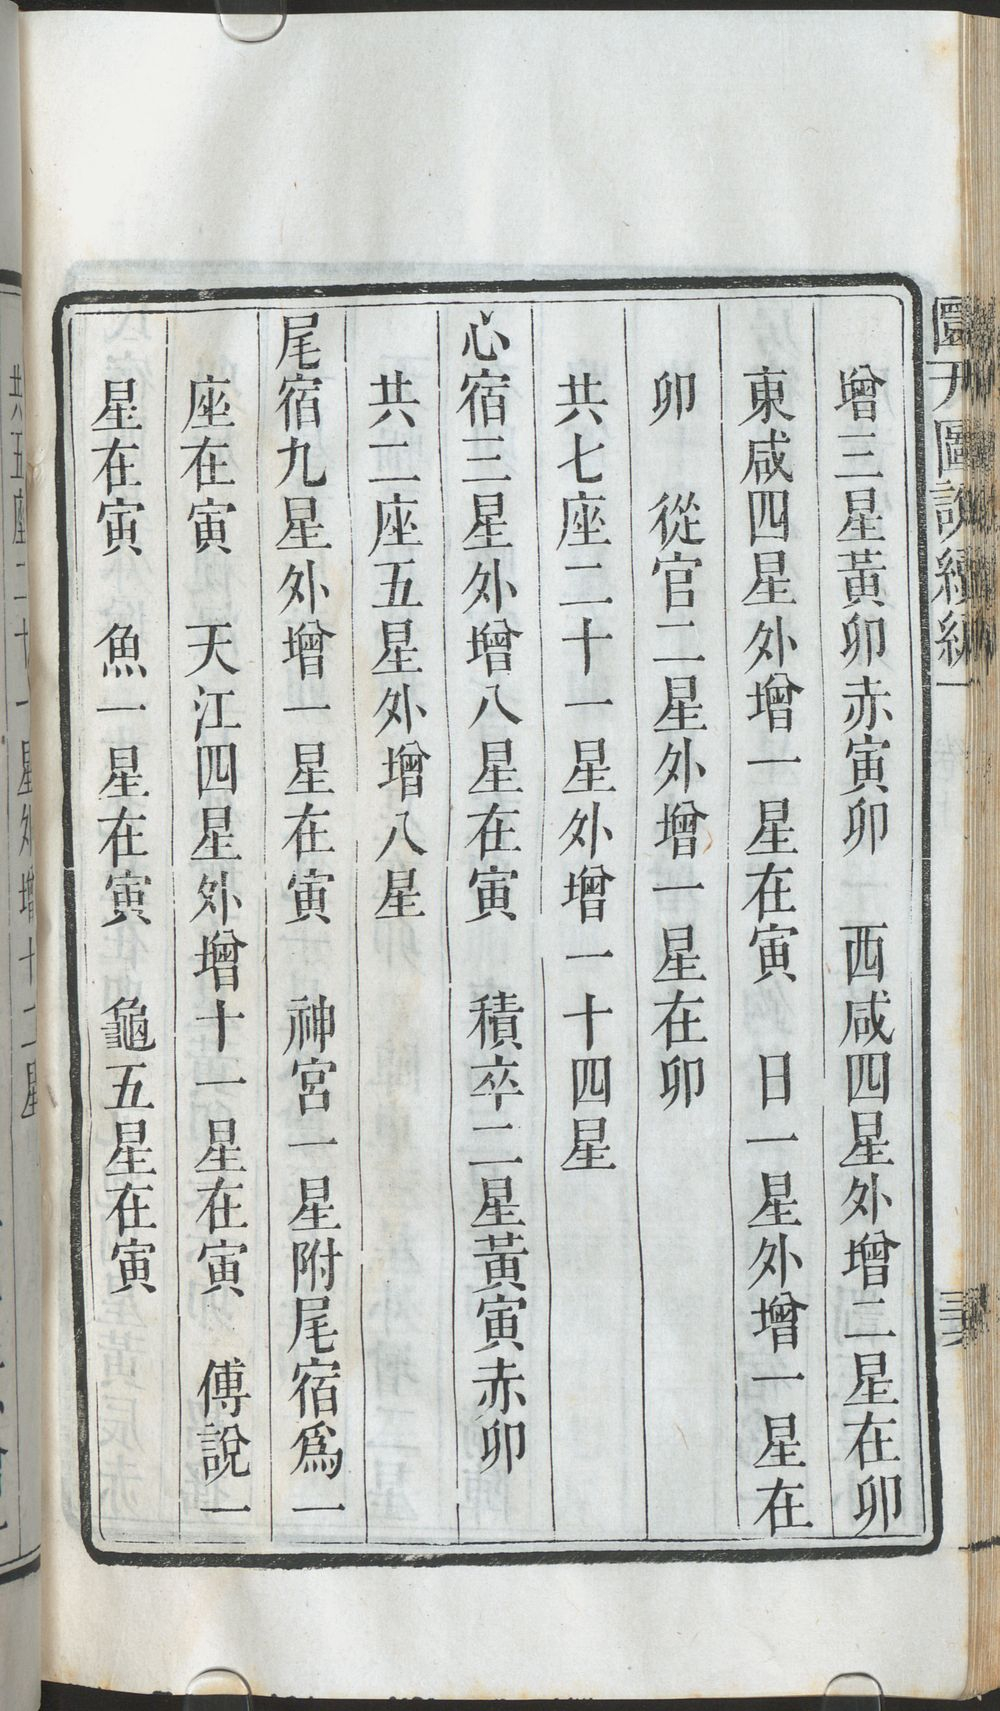 增三星黃卯赤寅卯　西咸四星外增二星在卯
東咸四星外增一星在寅　日一星外增一星在
卯　從官二星外增一星在卯
共七座二十一星外增一十四星
心宿三星外增八星在寅　積卒二星黃寅赤卯
共二座五星外增八星
尾宿九星外增一星在寅　神宮一星附尾宿爲一
座在寅　天江四星外增十一星在寅　傅說一
星在寅　魚一星在寅　龜五星在寅
共五座二十一星外增十二星